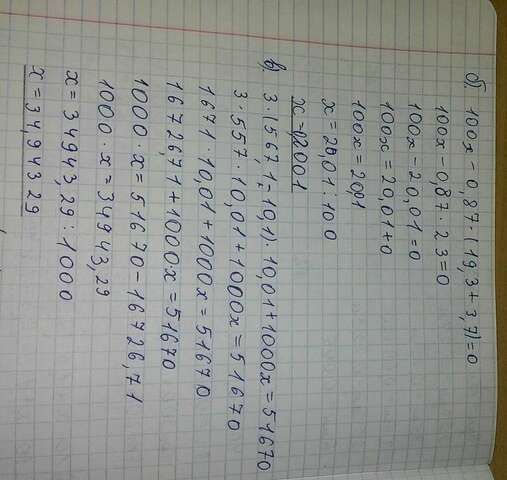 б). 100x - 0,87 · (19,3 + 3,7) = 0
100x - 0,87 · 23 = 0
100x - 20,01 = 0
100x = 20,01 + 0
100x = 20,01
x = 20,01 : 100
x = 0,2001
в). 3 · (567,1 - 10,1) · 10,01 + 1000x = 51670
3 · 557 · 10,01 + 1000x = 51670
1671 · 10,01 + 1000x = 51670
16726,71 + 1000·x = 51670
1000 · x = 51670 - 16726,71
1000 · x = 34943,29
x = 34943,29 : 1000
x = 34,94329